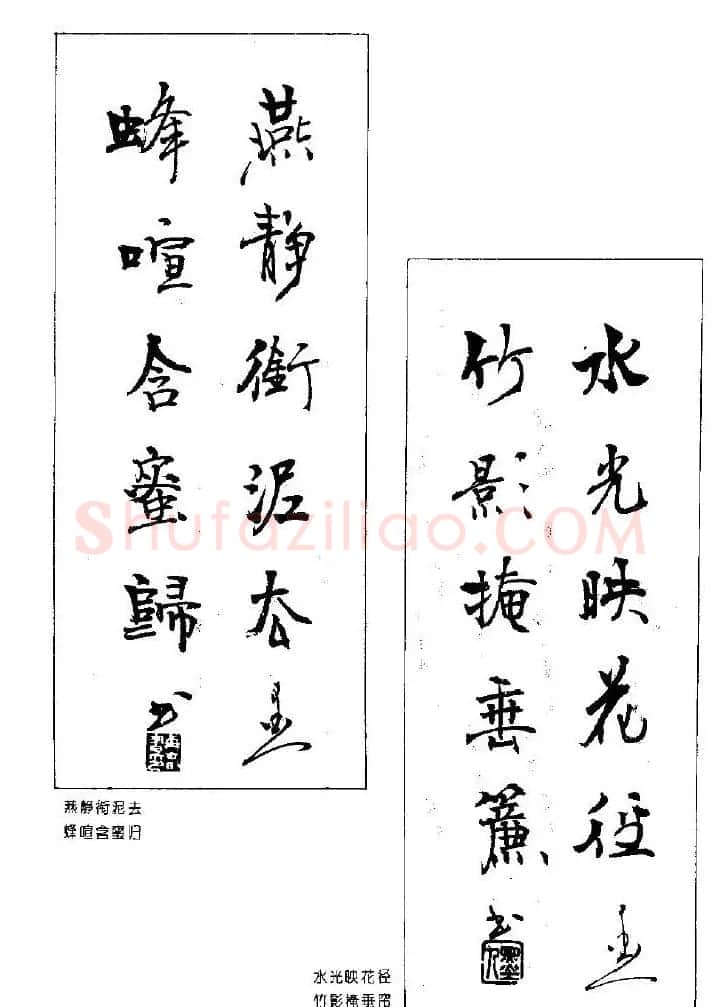 燕静銜泥去
蜂喧含蜜歸
书
燕静衔泥去
蜂喧含蜜归
水光映花徑
竹影掩垂簾
书
水光映花径
竹影掩垂帘
Shufaziliao.COM